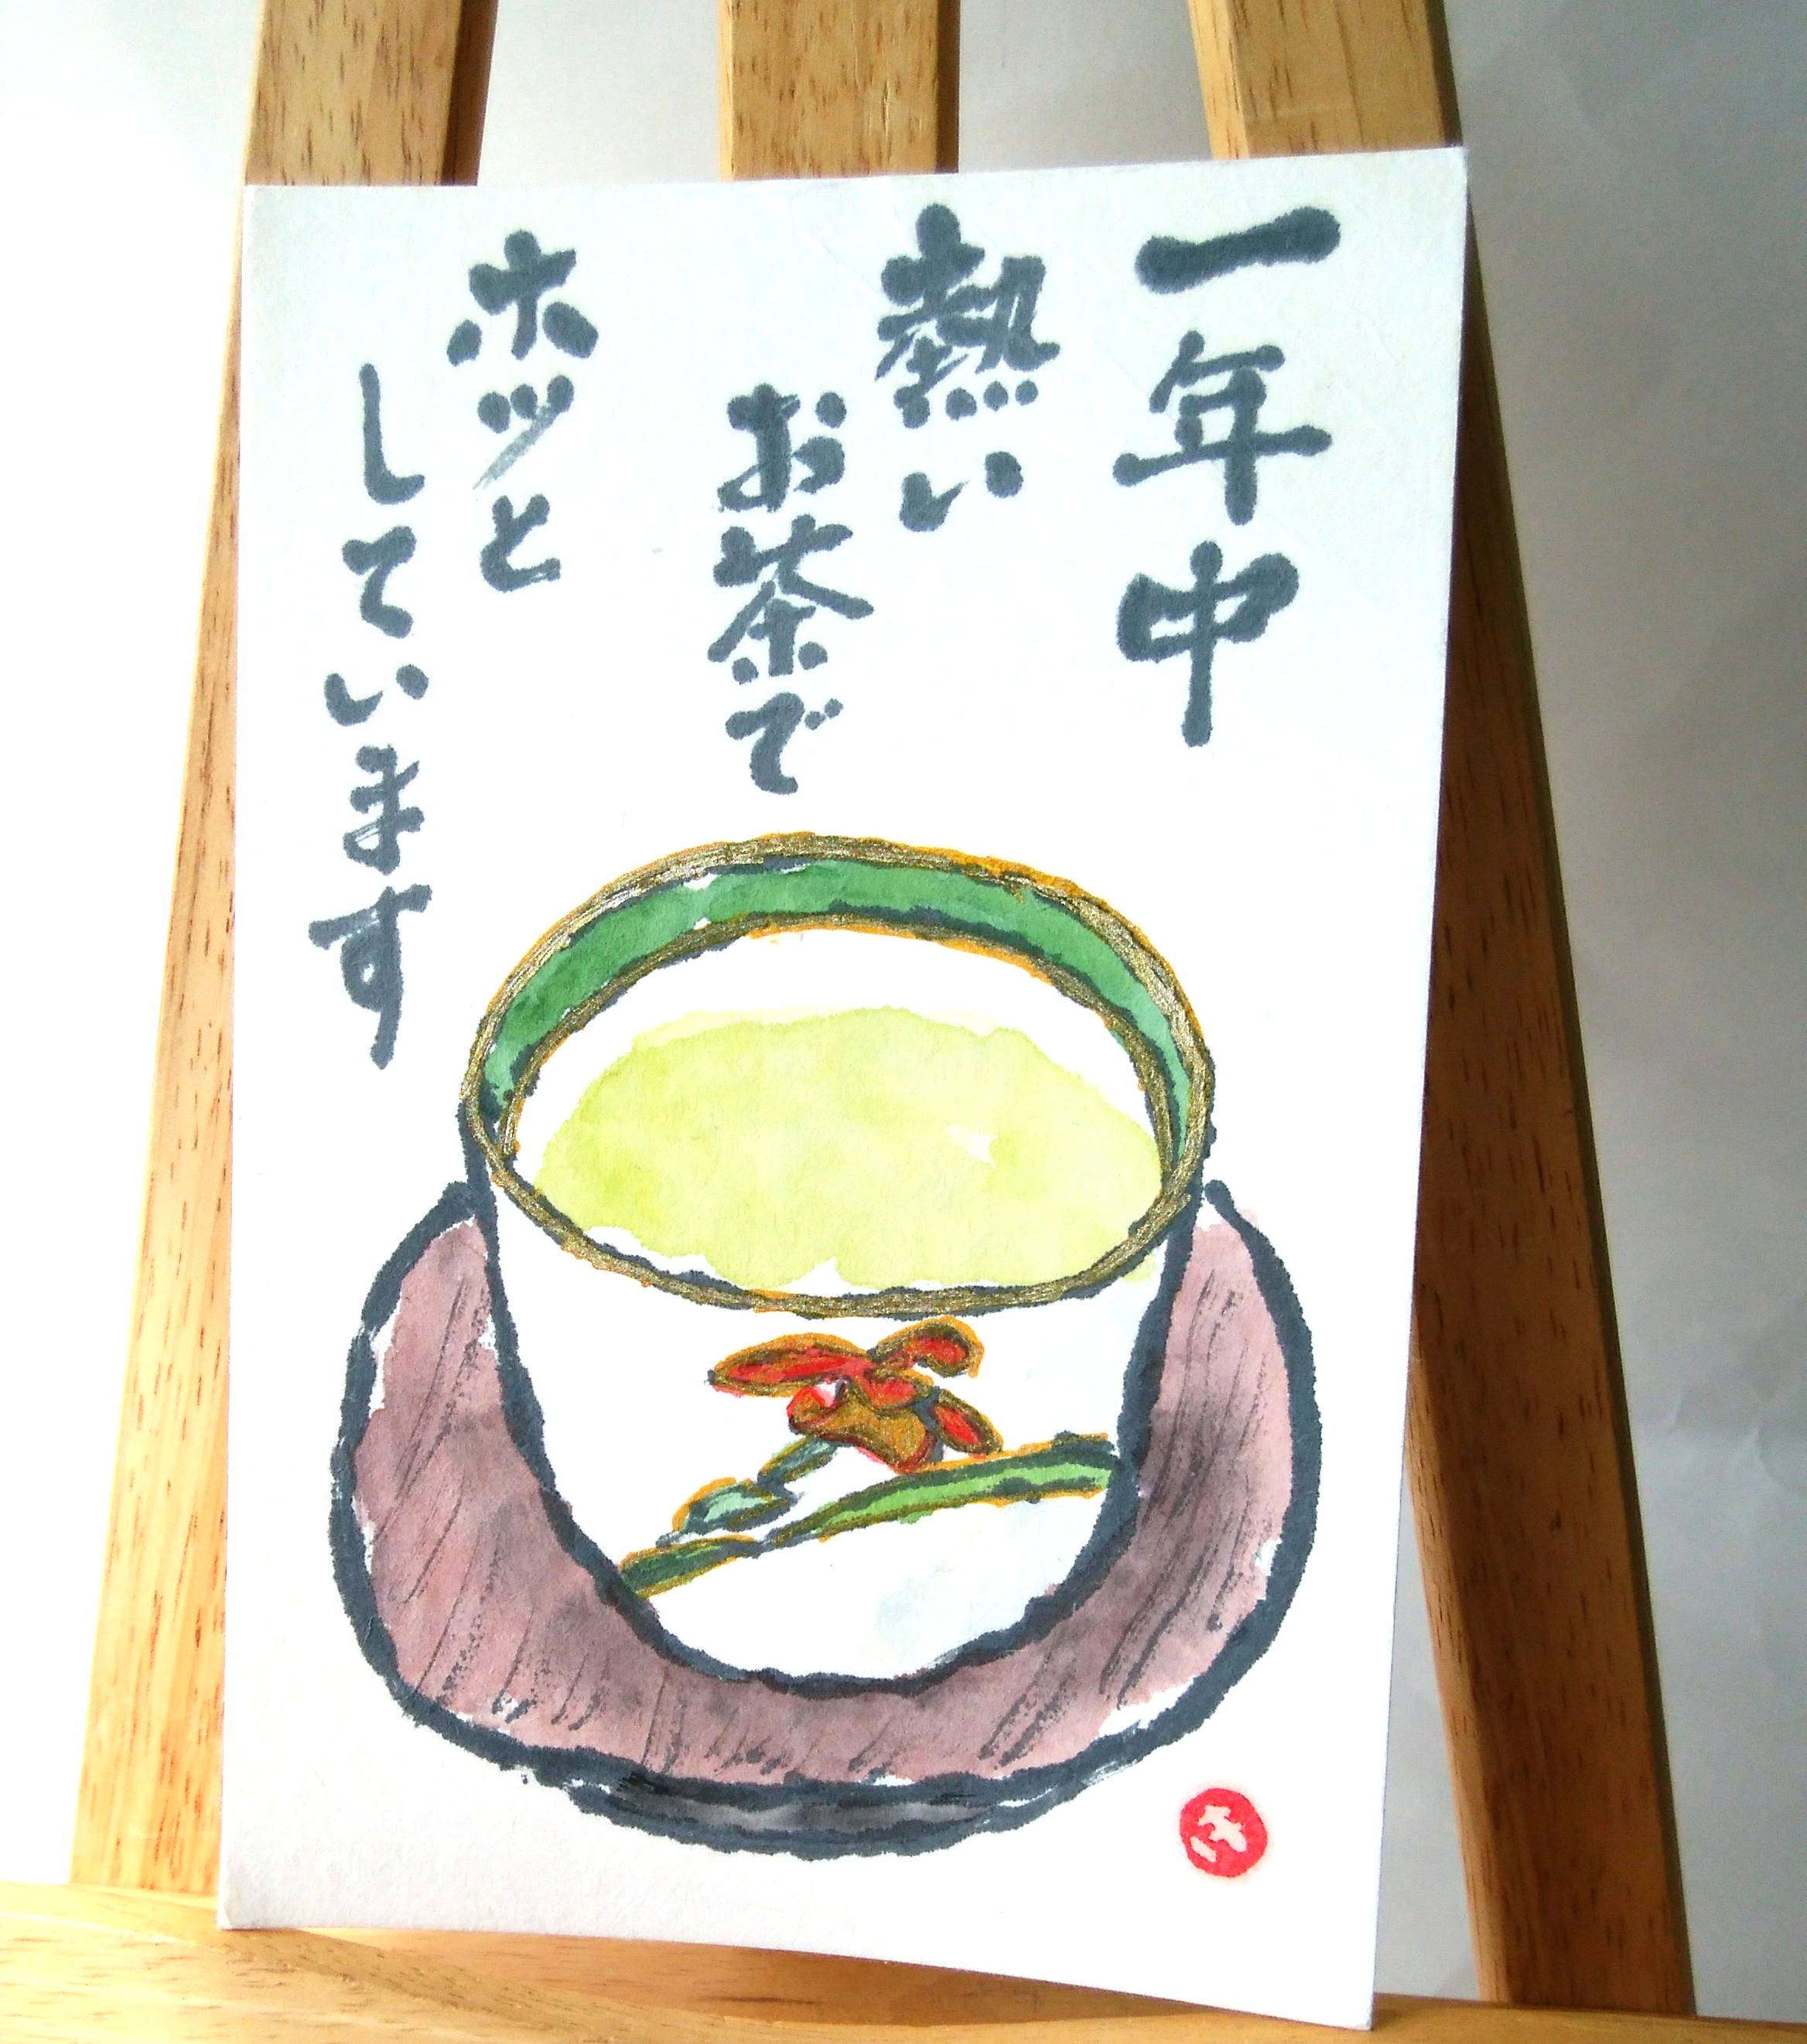 一年中
熱い
お茶で
ホッと
しています